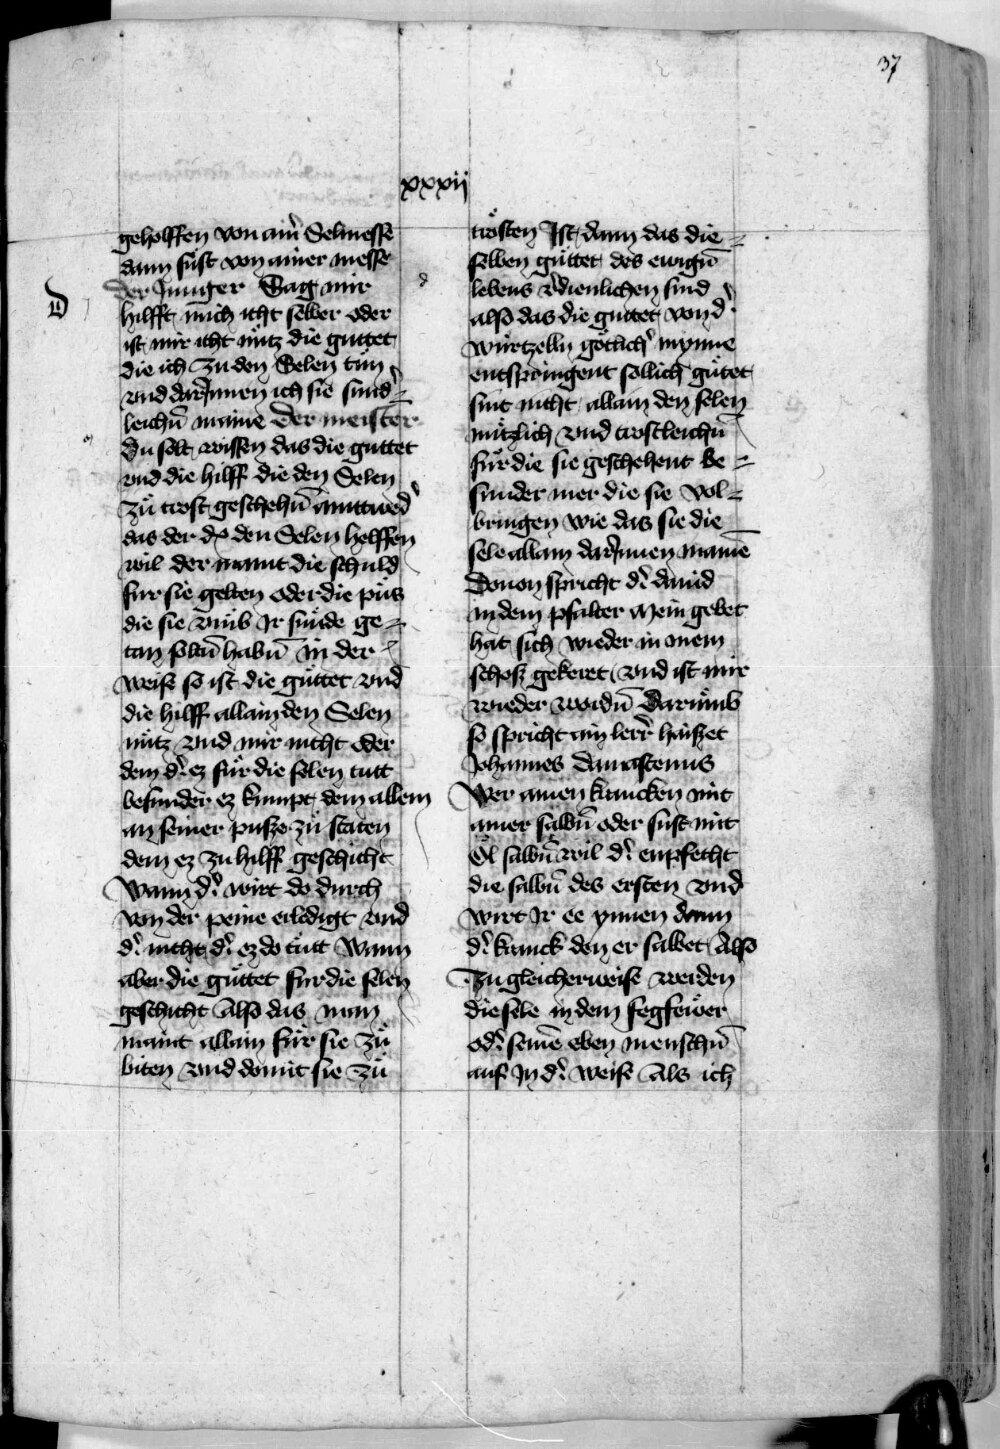 37
xxxij
geholffen von aim̄ Selmesse
dann sust von ainer messe
Der Junger Sag mir
hilfft mich icht selber oder
ist mir icht nütz die guttet
die ich zu den Selen tün
vnd darJnnen ich sie sund
leichn̄ maine Der meister
Du solt wissen das die guttet
vnd die hilff die den Selen
zü trost geschehn̄
das der den Selen helffen
wil der maint die schuld
fur sie gelten oder die püs
die sie vmb Jr sünde ge
tan habn̄ in der
weise so ist die güttet vnd
die hilff allain den Selen
nütz vnd mir nicht oder
dem d' ez für die selen tutt
besunder ez kumpt dem allem
an seiner pusze zü staten
dem ez zu hilff geschicht
Wann d' wirt do durch
von der peine erledigt vnd
d' nicht d' ez do tütt Wann
aber die güttet fur die selen
geschicht Also das man
maint allain für sie zü
biten vnd domit sie zü
trösten Jst dann das die
selben güttet des ewign̄
lebens v'dienlichen sind
also das die guttet von d'
würtzelln götlich' mynne
entspringent sollich gütet
sint nicht allain den selen
nützlich vnd trostleichn̄
für die sie geschehent be
sunder mer die sie vol
bringen wie das sie die
sele allain darJnnen mainē
Dovon spricht d' dauid
in dem psalter Mein gebet
hat sich wieder in mein
schosz gekeret vnd ist mir
wieder wordn̄ Darumb
so spricht ain lerr' haiszet
Johannes damascenus
Wer ainen krancken mit
ainer salbn̄ oder sust mit
Öl salbn̄ wil d' enpfecht
die salbn̄ des ersten vnd
wirt Jr ee ynnen dann
d' kranck den er salbet Also
Zu gleicherweise werden
die sele in dem fegfewer
od' seinē eben menschn̄
auf Jn d' weise Als ich